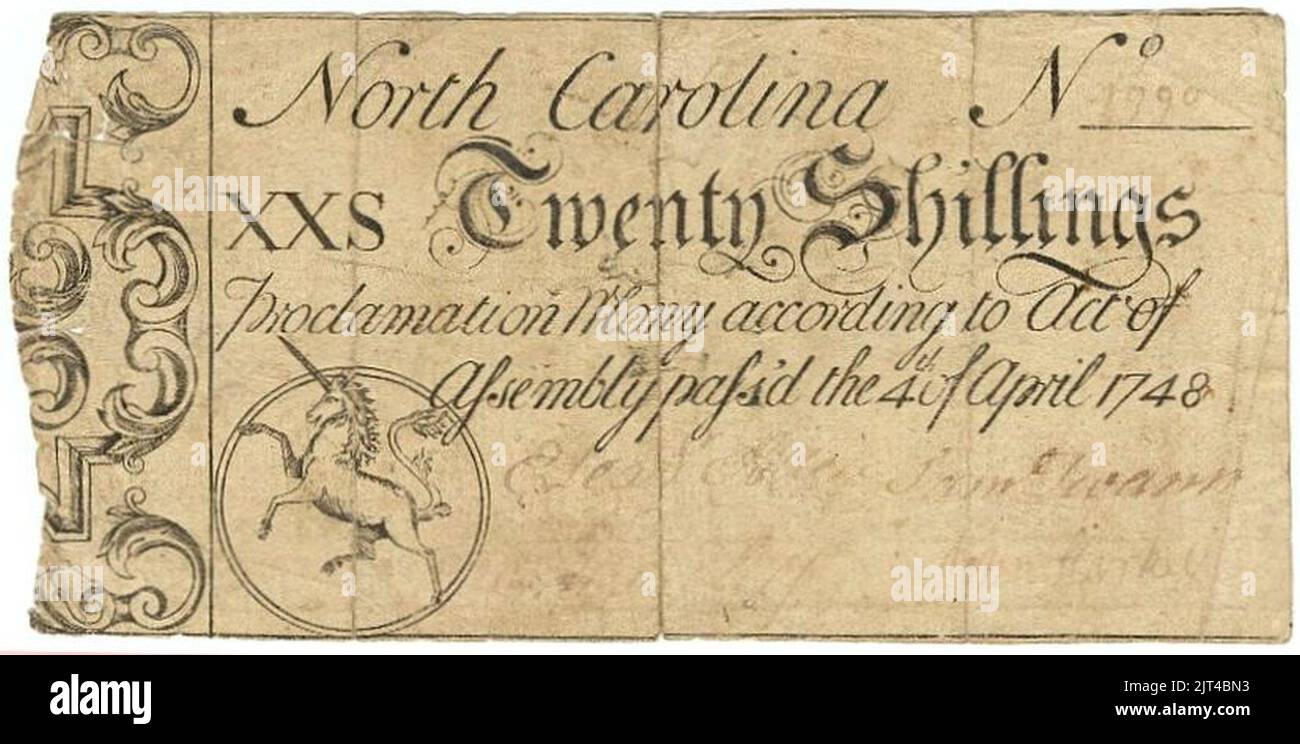 North Carolina Nº 1790
XXS Twenty Shillings
Proclamation Mony according to Act of
Aſsembly paſs'd the 4th of April 1748
Samˡ Swann
alamy
Image ID: 2JT4BN3
www.alamy.com